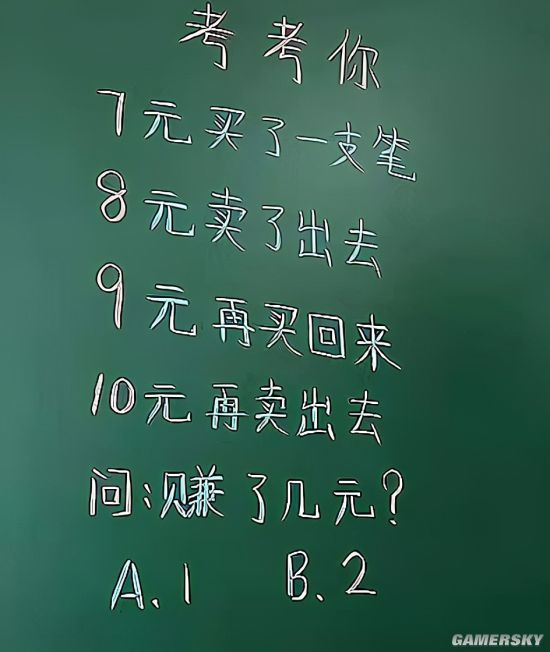 考考你
7元买了一支笔
8元卖了出去
9元再买回来
10元再卖出去
问:赚了几元?
A.1 B.2
GAMERSKY